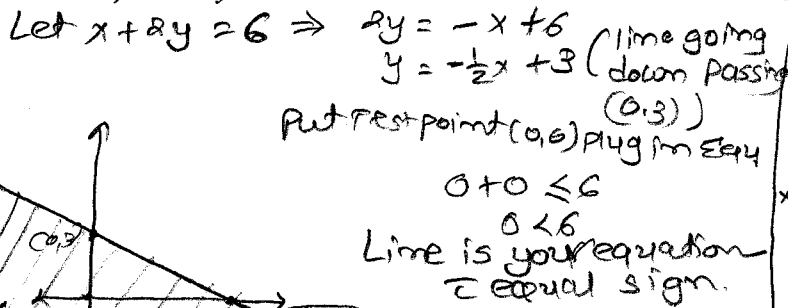 Let x+2y=6 ⇒ 2y = -x+6
y = -1/2x +3 (line going
down passing
(0,3))
Put Test point (0,0) plug in Equ
0+0 ≤6
0<6
Line is your equation
equal sign.
(0,3)